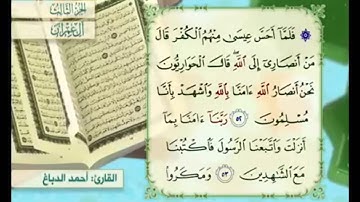 الجزء الثالث
آل عمران
۞ فَلَمَّآ أَحَسَّ عِيسَىٰ مِنْهُمُ ٱلْكُفْرَ قَالَ
مَنْ أَنصَارِىٓ إِلَى ٱللَّهِ ۖ قَالَ ٱلْحَوَارِيُّونَ
نَحْنُ أَنصَارُ ٱللَّهِ ءَامَنَّا بِٱللَّهِ وَٱشْهَدْ بِأَنَّا
مُسْلِمُونَ ٥٢ رَبَّنَآ ءَامَنَّا بِمَآ
أَنزَلْتَ وَٱتَّبَعْنَا ٱلرَّسُولَ فَٱكْتُبْنَا
مَعَ ٱلشَّٰهِدِينَ ٥٣ وَمَكَرُوا۟
القارئ: أحمد الدباغ